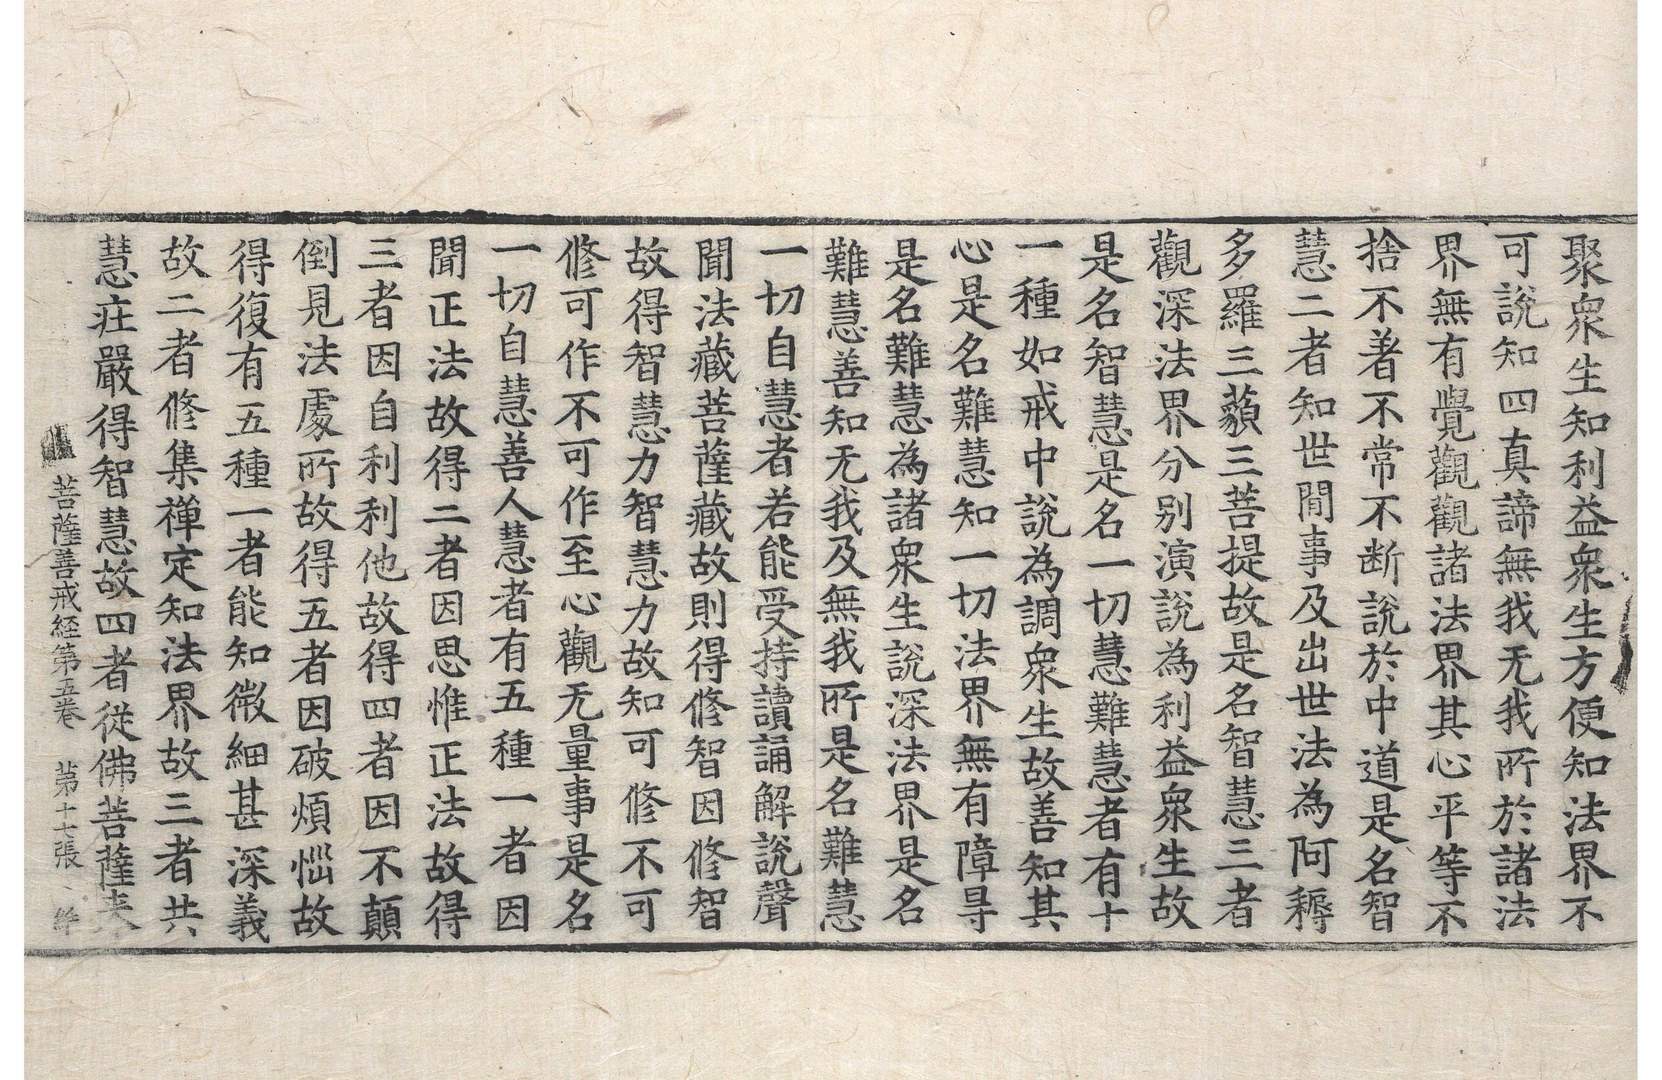 聚衆生知利益衆生方便知法界不
可說知四真諦無我无我所於諸法
界無有覺觀觀諸法界其心平等不
捨不著不常不断說於中道是名智
慧二者知世間事及出世法為阿耨
多羅三藐三菩提故是名智慧三者
觀深法界分别演說為利益衆生故
是名智慧是名一切慧難慧者有十
一種如戒中說為調衆生故善知其
心是名難慧知一切法界無有障㝵
是名難慧為諸衆生說深法界是名
難慧善知无我及無我所是名難慧
一切自慧者若能受持讀誦解說聲
聞法藏菩薩藏故則得修智因修智
故得智慧力智慧力故知可修不可
修可作不可作至心觀无量事是名
一切自慧善人慧者有五種一者因
聞正法故得二者因思惟正法故得
三者因自利利他故得四者因不顛
倒見法處所故得五者因破煩惱故
得復有五種一者能知微細甚深義
故二者修集禪定知法界故三者共
慧莊嚴得智慧故四者從佛菩薩来
菩薩善戒経第五卷 第十七張